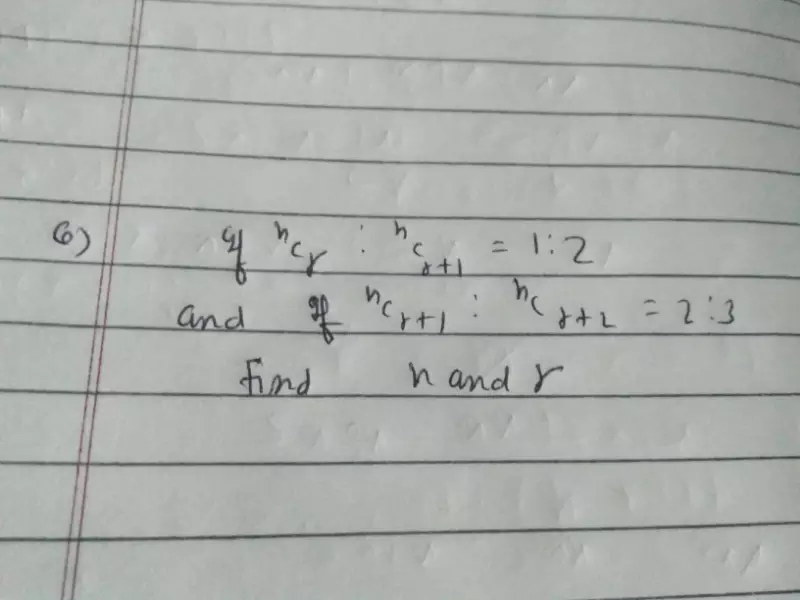 6) If ⁿCᵣ : ⁿCᵣ₊₁ = 1:2
and if ⁿCᵣ₊₁ : ⁿCᵣ₊₂ = 2:3
find n and r